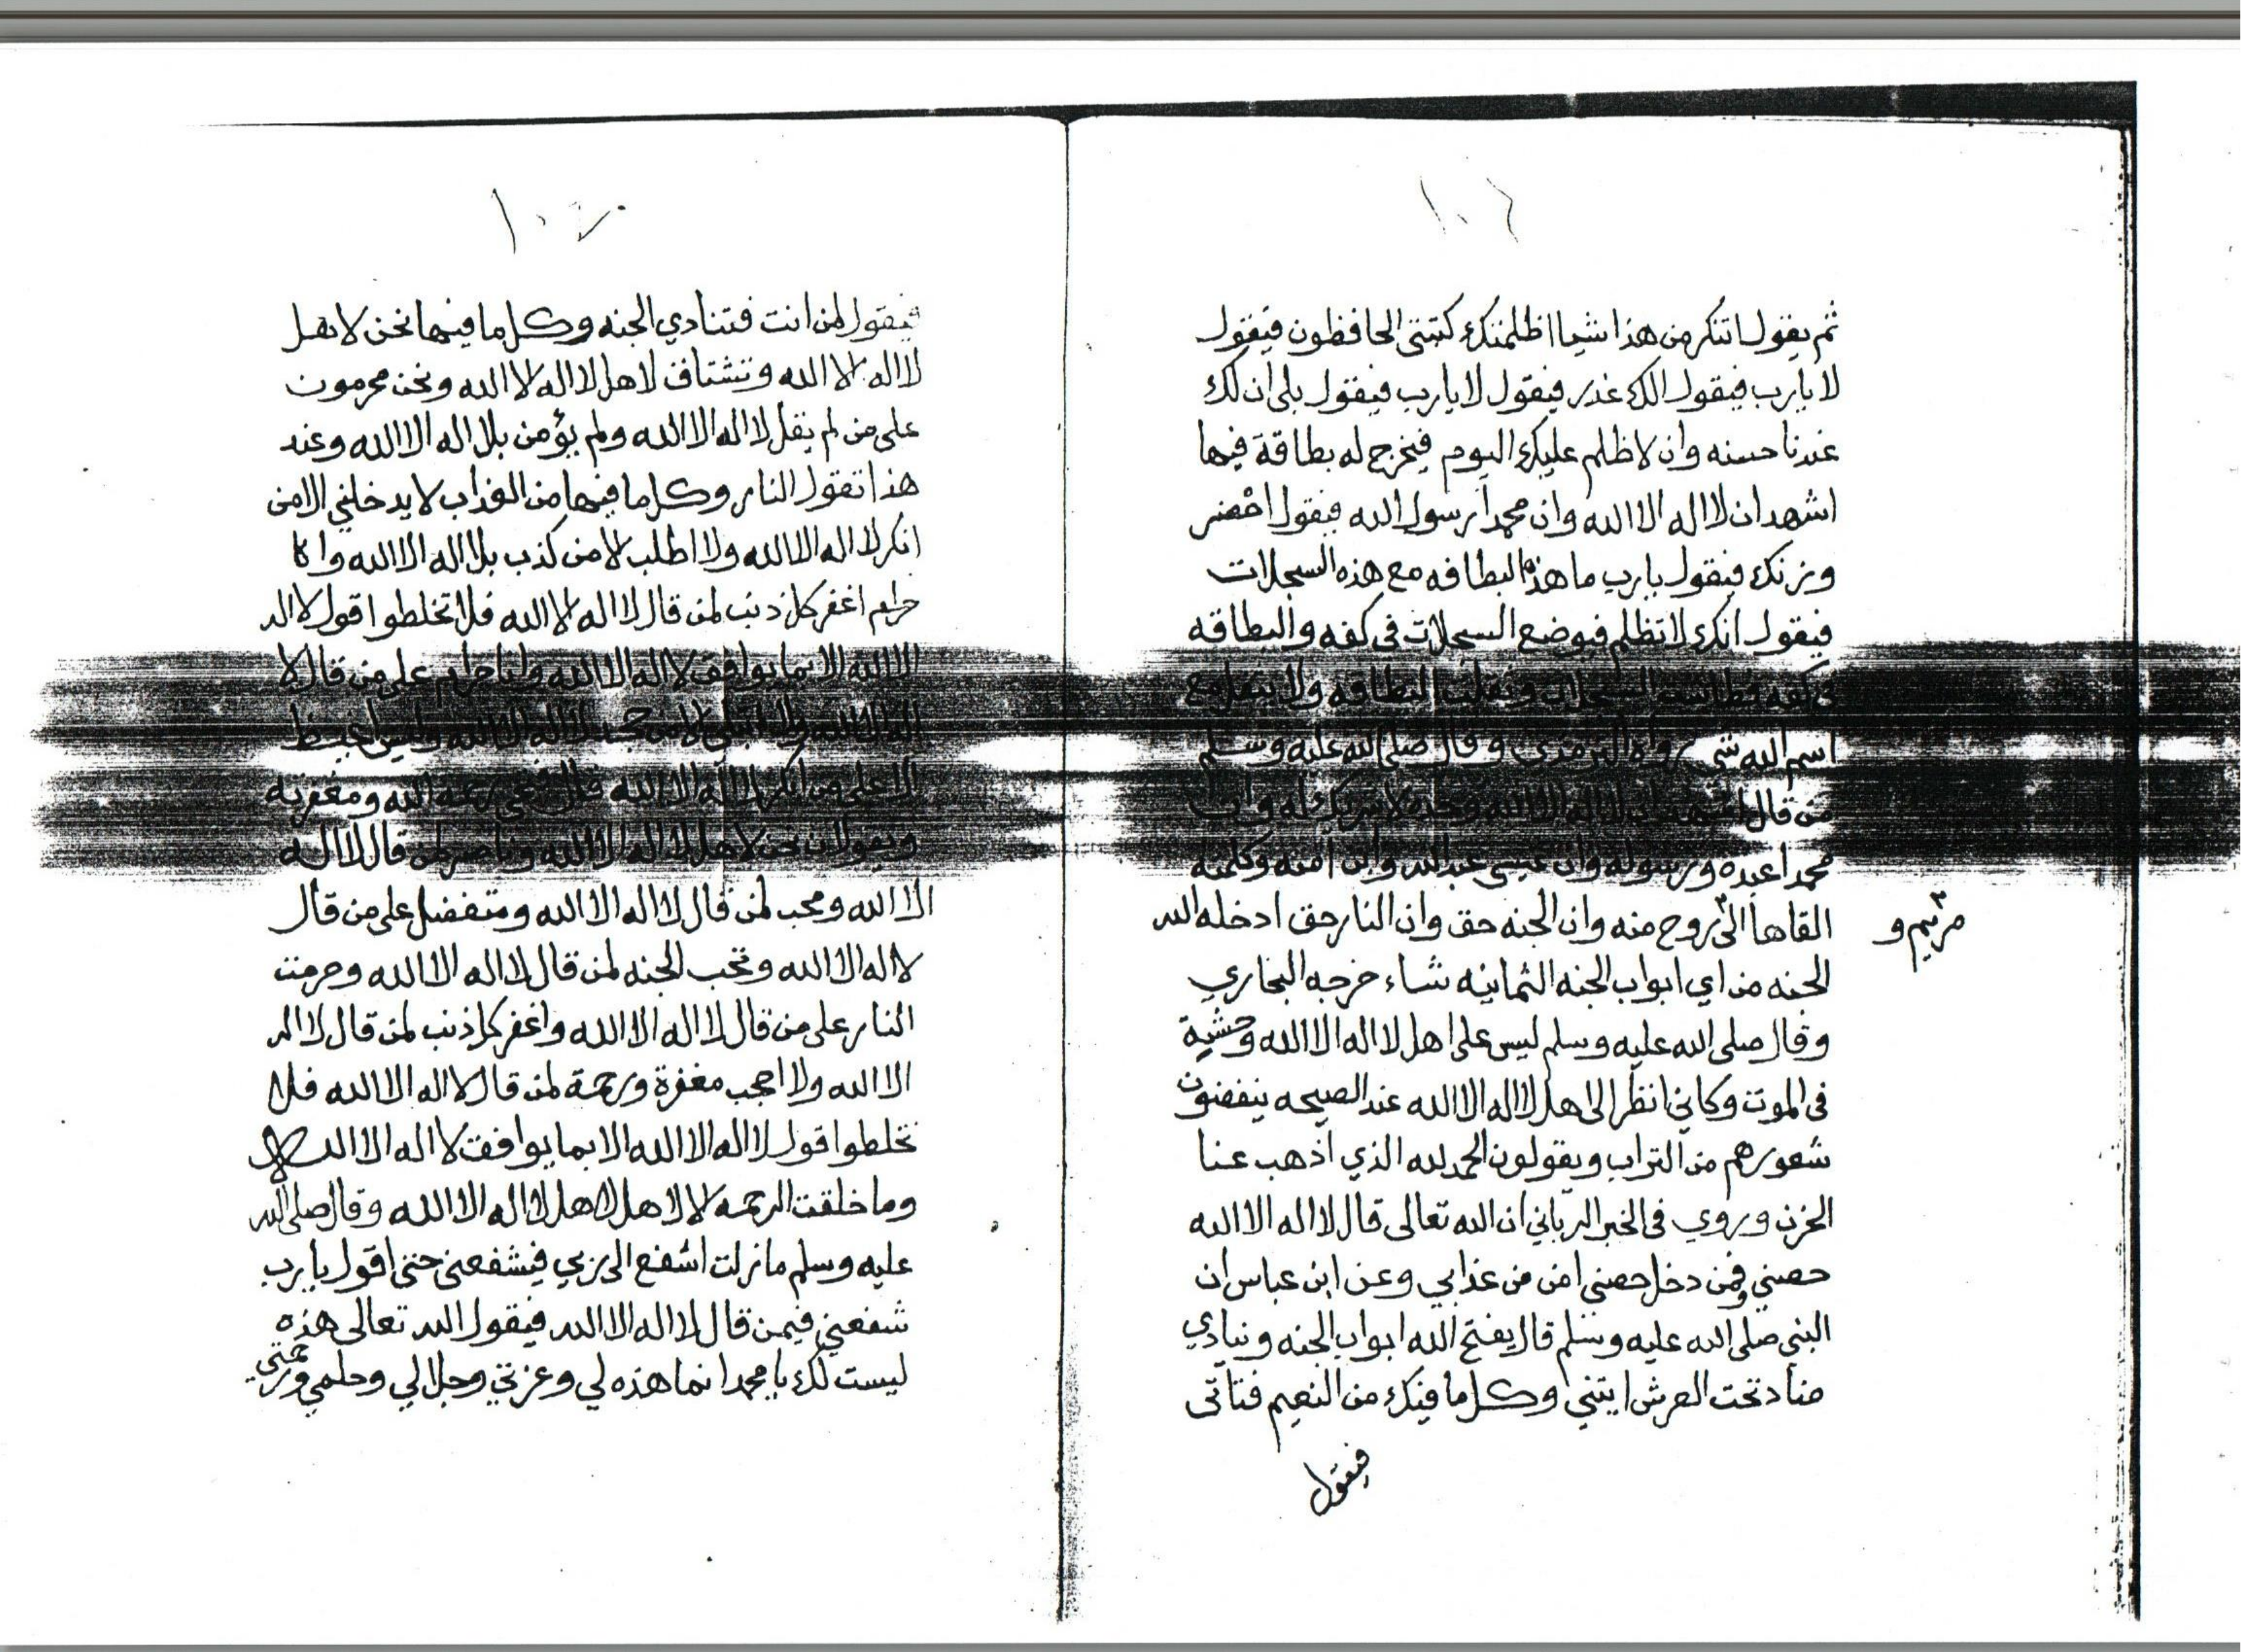 ١٠٦
ثم يقول اتنكر من هذا شيا اظلمتك كتبتي الحافظون فيقول
لا يارب فيقول الك عذر فيقول لا يارب فيقول بلى ان لك
عندنا حسنه وان لا ظلم عليك اليوم فيخرج له بطاقة فيها
اشهد ان لا اله الا الله وان محمدا رسول الله فيقول احضر
وزنك فيقول يارب ما هذه البطاقه مع هذه السجلات
فيقول انك لا تظلم فيوضع السجلات في كفه والبطاقه
في كفه فطاشت السجلات وثقلت البطاقه ولا يثقل مع
اسم الله شي رواه الترمذي وقال صلى الله عليه وسلم
من قال اشهد ان لا اله الا الله وحده لا شريك له وان
محمدا عبده ورسوله وان عيسى عبد الله وابن امته وكلمته
القاها الى روح منه وان الجنه حق وان النار حق ادخله الله
مريم و
الجنه من اي ابواب الجنه الثمانيه شاء خرجه البخاري
وقال صلى الله عليه وسلم ليس على اهل لا اله الا الله وحشية
في الموت وكاني انظر الى اهل لا اله الا الله عند الصيحه ينفضون
شعورهم من التراب ويقولون الحمد لله الذي اذهب عنا
الحزن وروي في الخبر الرباني ان الله تعالى قال لا اله الا الله
حصني فمن دخل حصني امن من عذابي وعن ابن عباس ان
النبي صلى الله عليه وسلم قال يفتح الله ابواب الجنه وينادي
مناد تحت العرش ايتني وكل ما فيك من النعيم فتاتي
فيقول
١٠٧
فيقول لمن انت فتنادي الجنه وكل ما فيها نحن لاهل
لا اله الا الله وتشتاق لاهل لا اله الا الله ونحن محرمون
على من لم يقل لا اله الا الله ولم يؤمن بلا اله الا الله وعند
هذا تقول النار وكل ما فيها من العذاب لا يدخلني الا من
انكر لا اله الا الله ولا اطلب الا من كذب بلا اله الا الله وانا
حرام اغفر كل ذنب لمن قال لا اله الا الله فلا تخلطوا قول لا اله
الا الله الا بما يوافق لا اله الا الله وانا حرام على من قال لا
اله الا الله ولا امتلي الا من جحد لا اله الا الله وليس اغيظ
الا على من انكر لا اله الا الله قال فتجي رحمة الله ومغفرته
ويقولان نحن لاهل لا اله الا الله وناصر لمن قال لا اله
الا الله ومحب لمن قال لا اله الا الله ومتفضل على من قال
لا اله الا الله وتحب الجنه لمن قال لا اله الا الله وحرمت
النار على من قال لا اله الا الله واغفر كل ذنب لمن قال لا اله
الا الله ولا احجب مغفرة ورحمة لمن قال لا اله الا الله فلا
تخلطوا قول لا اله الا الله الا بما يوافق لا اله الا الله
وما خلقت الرحمه الا لاهل لا اله الا الله وقال صلى الله
عليه وسلم مازلت اشفع الى ربي فيشفعني حتى اقول يا رب
شفعني فيمن قال لا اله الا الله فيقول الله تعالى هذه
ليست لك يا محمد انما هذه لي وعزتي وجلالي وحلمي ورحمتي